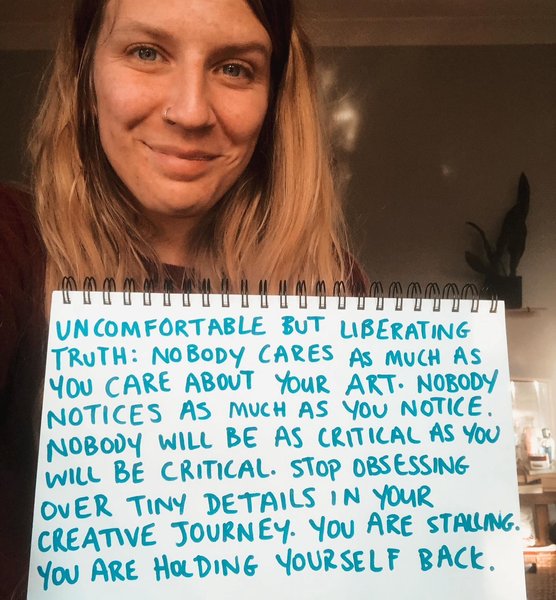 UNCOMFORTABLE BUT LIBERATING
TRUTH: NOBODY CARES AS MUCH AS
YOU CARE ABOUT YOUR ART. NOBODY
NOTICES AS MUCH AS YOU NOTICE.
NOBODY WILL BE AS CRITICAL AS YOU
WILL BE CRITICAL. STOP OBSESSING
OVER TINY DETAILS IN YOUR
CREATIVE JOURNEY. YOU ARE STALLING.
YOU ARE HOLDING YOURSELF BACK.